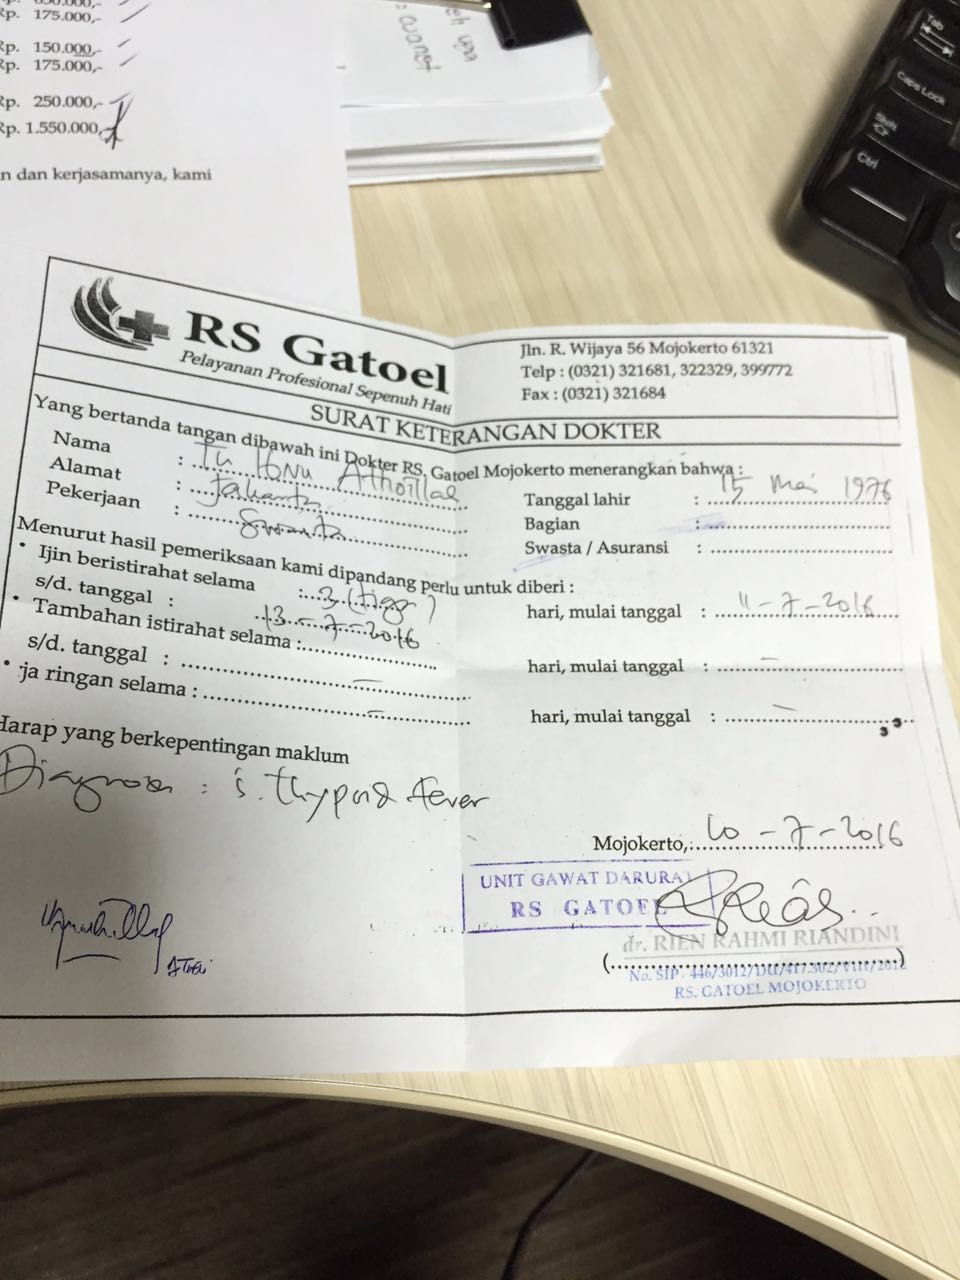 Rp. 175.000,-
Rp. 150.000,-
Rp. 175.000,-
Rp. 250.000,-
Rp. 1.550.000,
n dan kerjasamanya, kami
Tab
Caps Lock
Shift
Ctrl
RS Gatoel
Pelayanan Profesional Sepenuh Hati
Jln. R. Wijaya 56 Mojokerto 61321
Telp : (0321) 321681, 322329, 399772
Fax : (0321) 321684
SURAT KETERANGAN DOKTER
Yang bertanda tangan dibawah ini Dokter RS, Gatoel Mojokerto menerangkan bahwa :
Nama : Tn Ibnu Athoillah
Tanggal lahir : 15 Mei 1976
Alamat : Jakarta
Bagian :
Pekerjaan : Swasta
Swasta / Asuransi :
Menurut hasil pemeriksaan kami dipandang perlu untuk diberi :
• Ijin beristirahat selama : 3 (tiga) hari, mulai tanggal : 11-7-2016
s/d. tanggal : 13-7-2016
• Tambahan istirahat selama : hari, mulai tanggal : -
s/d. tanggal : -
• ja ringan selama : - hari, mulai tanggal : -
Harap yang berkepentingan maklum
Diagnosa : s. thypoid fever
Mojokerto, 10-7-2016
UNIT GAWAT DARURAT
RS GATOEL
dr. RIEN RAHMI RIANDINI
RS. GATOEL MOJOKERTO